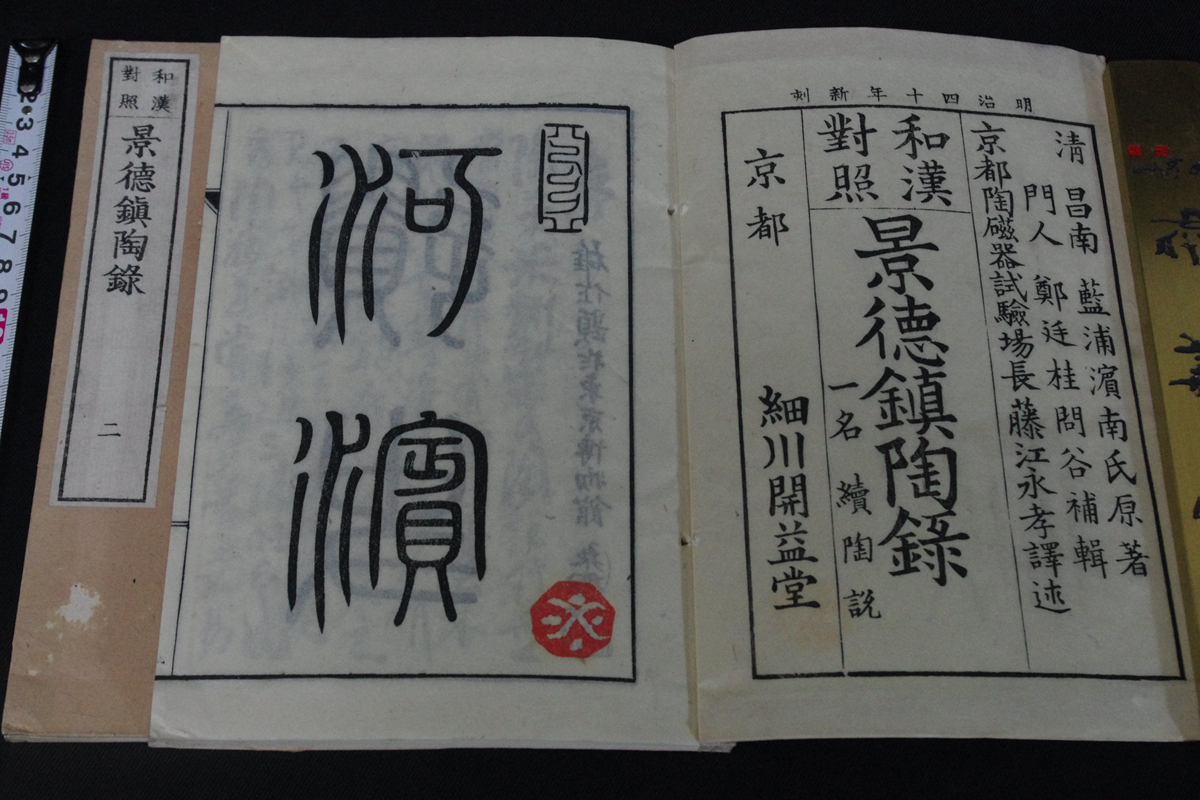 明治四十年新刻
清 昌南 藍浦濱南氏原著
門人 鄭廷桂問谷補輯
京都陶磁器試驗場長藤江永孝譯述
和漢
對照
景德鎮陶錄
一名 續陶説
京都 細川開益堂
河濱
和漢
對照
景德鎮陶錄
二